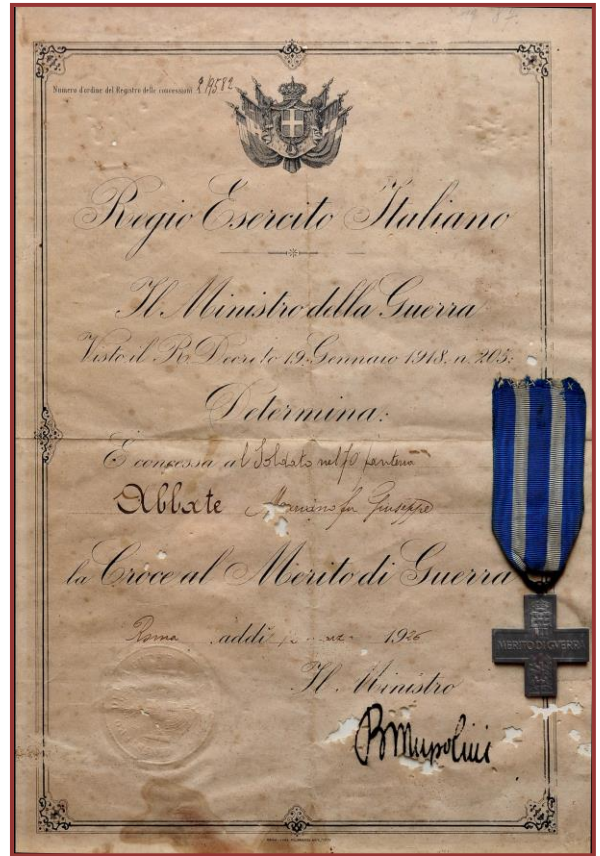 Numero d'ordine del Registro delle concessioni
Regio Esercito Italiano
Il Ministro della Guerra
Visto il R. Decreto 19 Gennaio 1918, n. 205;
Determina:
È concessa al Soldato nel 70 fanteria
Abbate fu Giuseppe
la Croce al Merito di Guerra
MERITO DI GVERRA
Roma addì 1926
Il Ministro
BMussolini